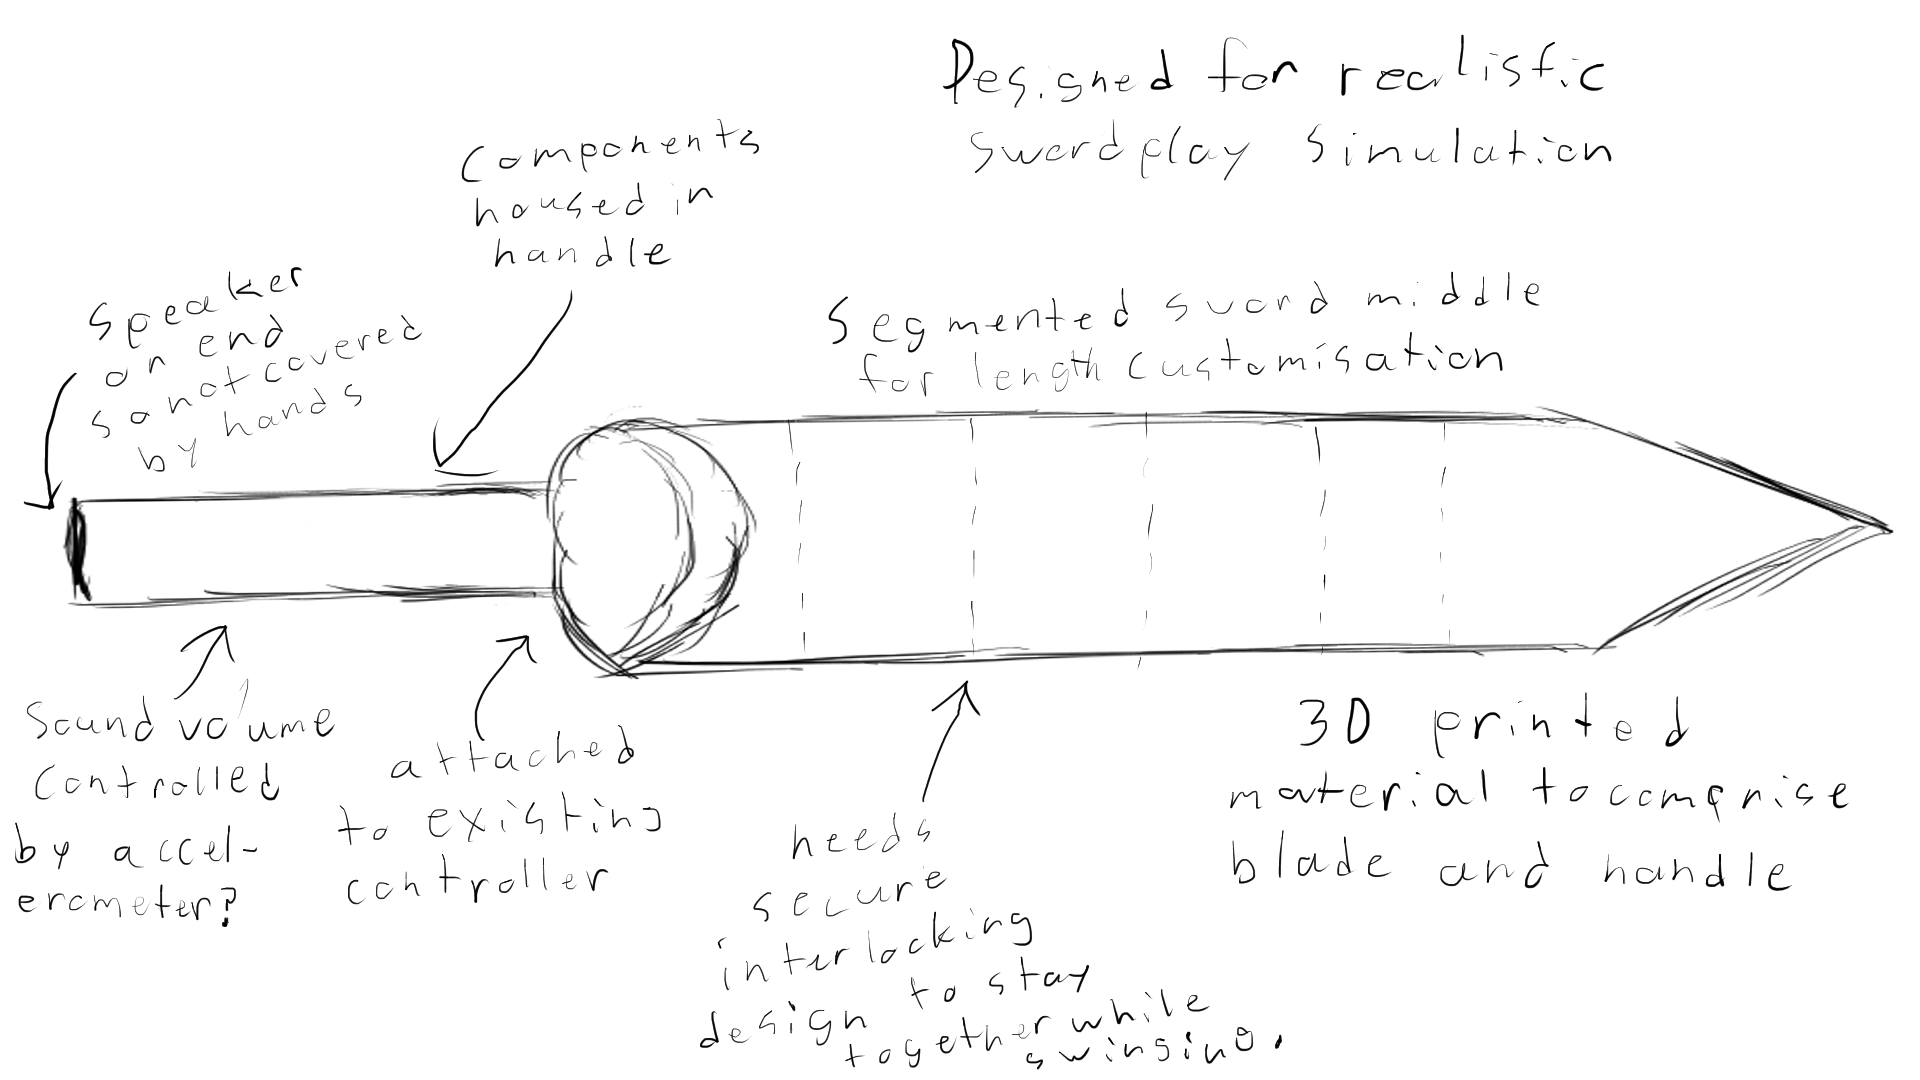 Designed for realistic
swordplay simulation
Components
housed in
handle
Speaker
on end
so not covered
by hands
Segmented sword middle
for length customisation
Sound volume
controlled
by accel-
erometer?
attached
to existing
controller
needs
secure
interlocking
design to stay
together while
swinging.
3D printed
material to comprise
blade and handle